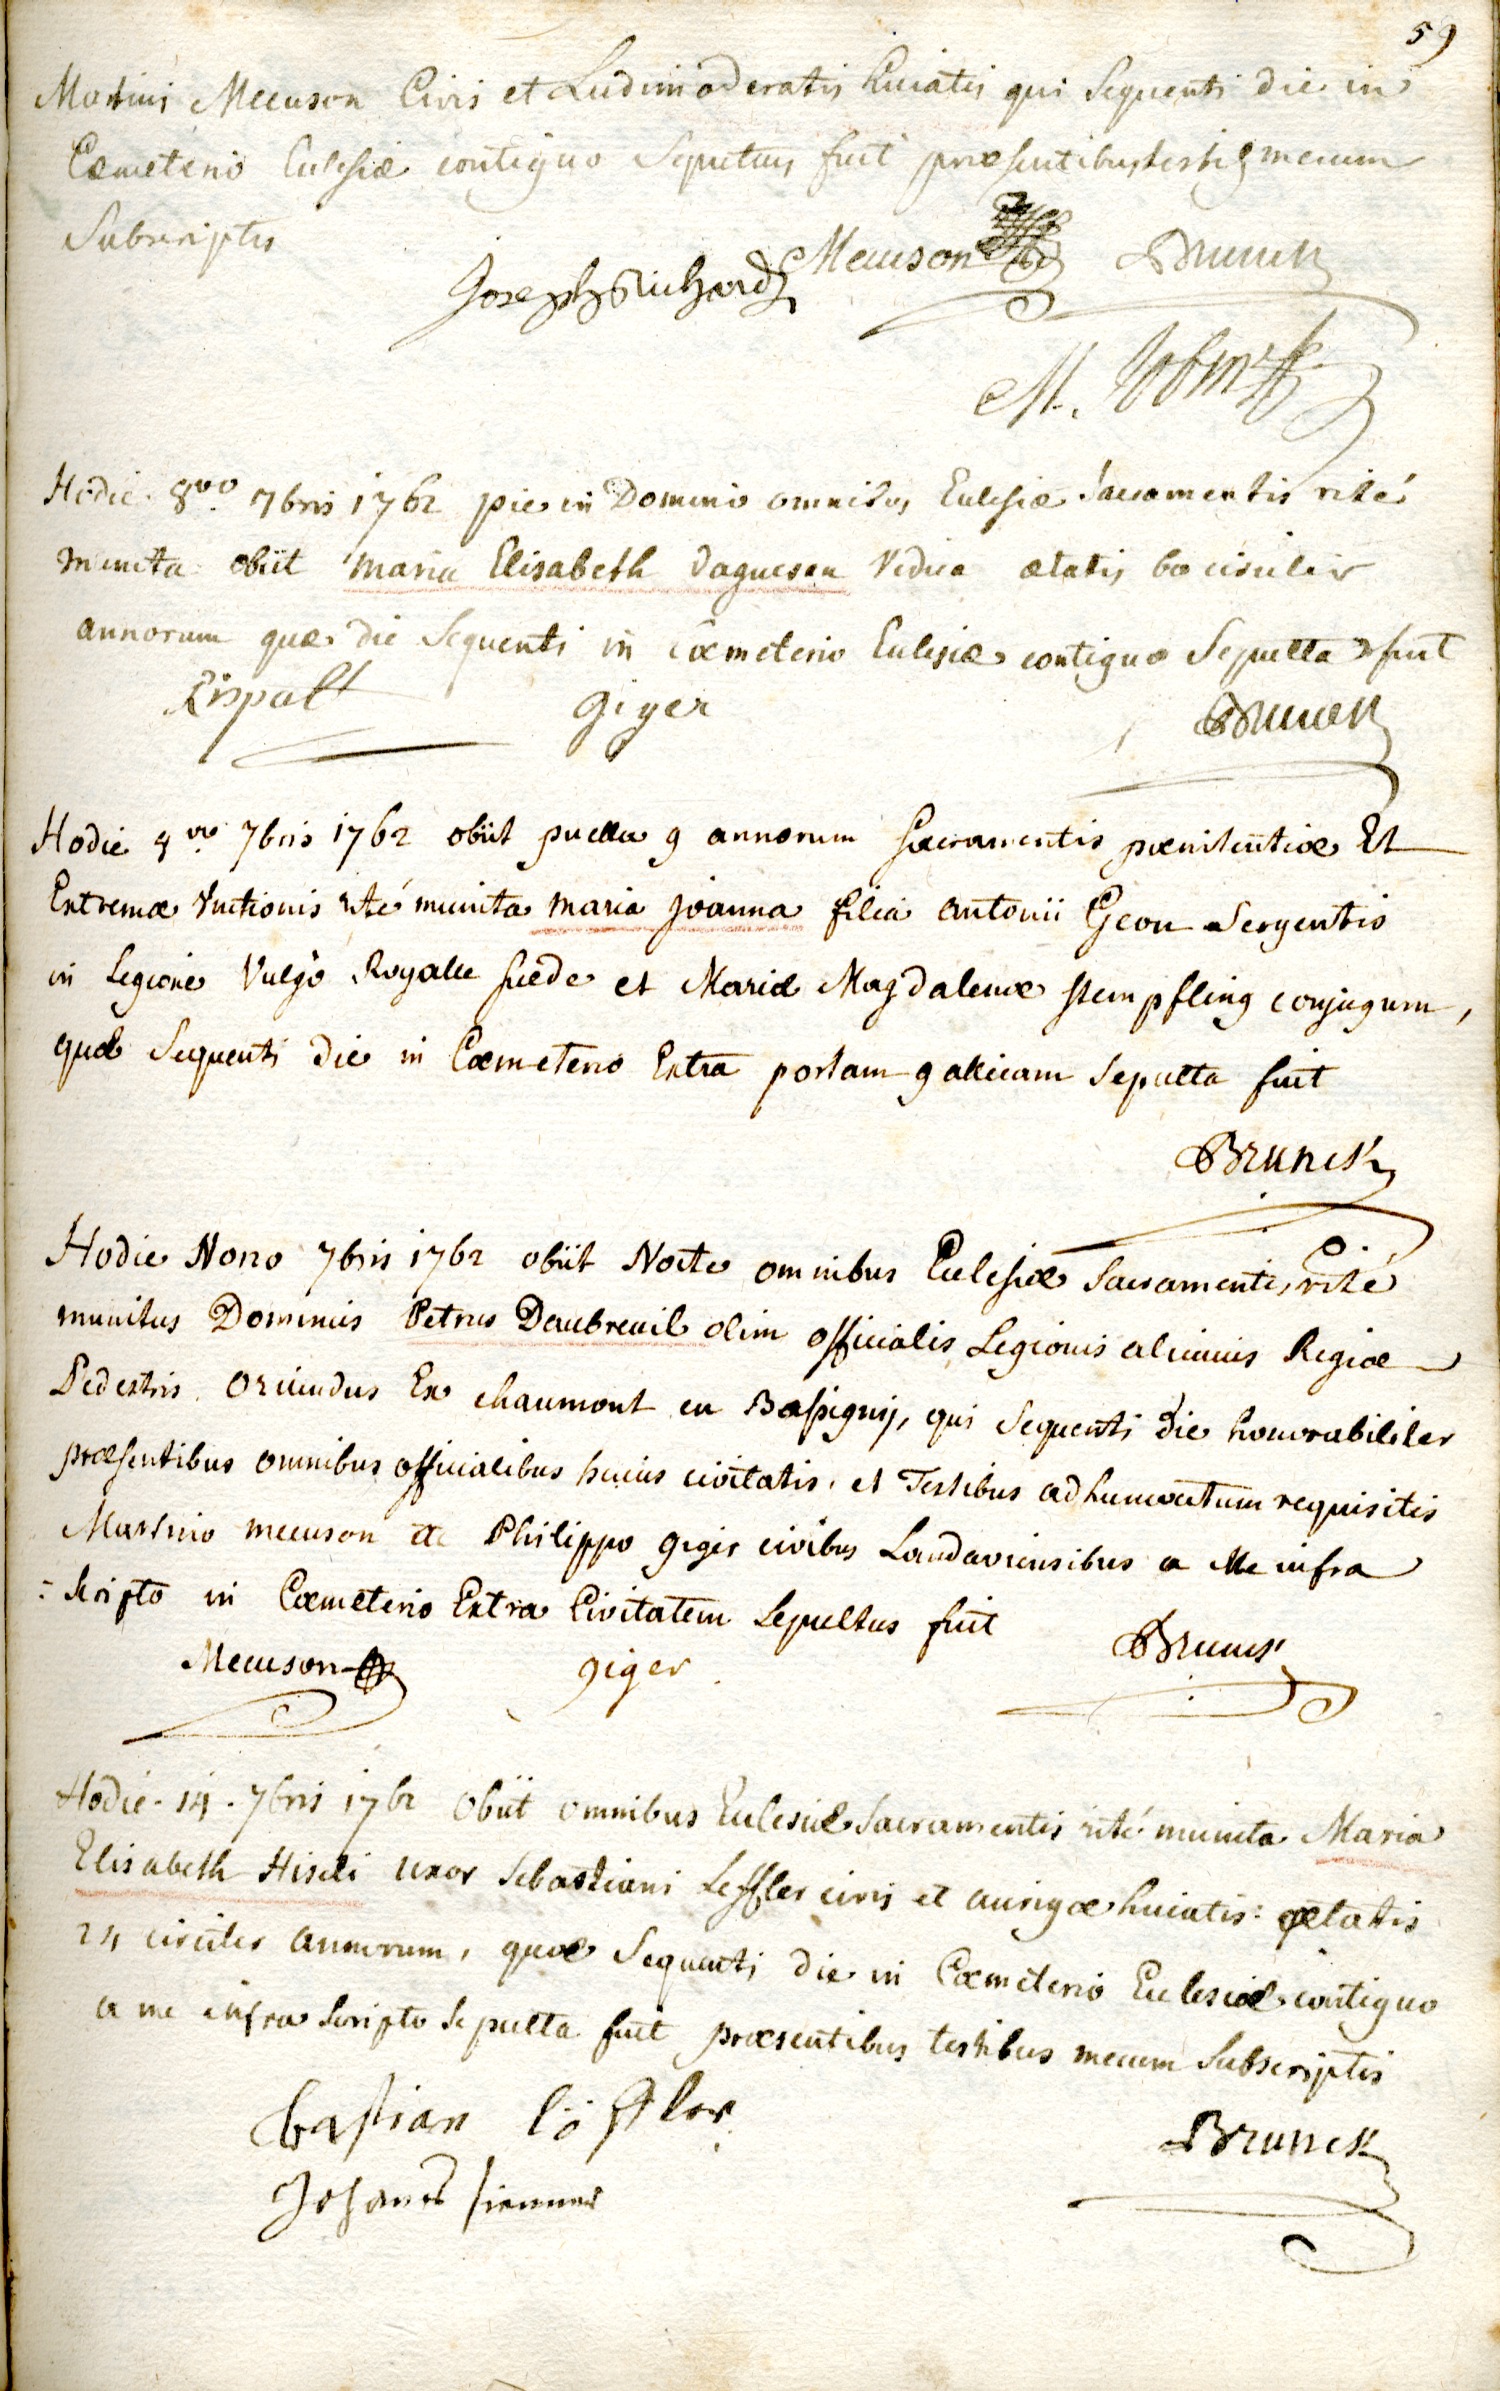 59
Martini Mecuson Civis et Ludimoderatis huiatis qui Sequenti die in
Cœmeterio Eulesiæ contiguo Sepultus fuit præsentibus testibq mecum
Subscriptis
Joseph Richard Mecuson Brunck
M.
Hodie 8vo 7bris 1762 pie in Domino omnibus Eulesiæ Sacramentis rité
munita obiit Maria Elisabeth Daguesen Vidua ætatis 60 circiter
annorum quæ die Sequenti in cœmeterio Eulesiæ contiguo Sepulta fuit
Rispalt giger Brunck
Hodie 8vo 7bris 1762 obiit puella 9 annorum Sacramentis pœnitentiæ Et
Extremæ Unctionis rité munita maria joanna filia antonii Geon Sergentis
in Legione Vulgo Royalle Suede et Mariæ Magdalenæ Stempfling conjugum,
quæ Sequenti die in Cœmeterio Extra portam gallicam Sepulta fuit
Brunck
Hodie Nono 7bris 1762 obiit Nocte omnibus Eulesiæ Sacramentis rité
munitus Dominus Petrus Daubreuil olim officialis Legionis aliuius Regiæ
Pedestris oriundus Ex chaumont en Bassigny, qui Sequenti die honorabiliter
præsentibus omnibus officialibus huius civitatis, et Testibus ad hunc actum requisitis
Martino mecuson ac Philippo giger civibus Landaviensibus a Me infra
scripto in Cœmeterio Extra Civitatem Sepultus fuit
Mecuson giger Brunck
Hodie 14. 7bris 1762 obiit omnibus Eulesiæ Sacramentis rité munita Maria
Elisabeth Hiseli uxor Sebastiani Leffler civis et aurigæ huiatis: ætatis
24 circiter annorum, quæ Sequenti die in Cœmeterio Eulesiæ contiguo
a me infra Scripto Sepulta fuit præsentibus testibus mecum Subscriptis
Bastian löffler
Brunck
Johanes